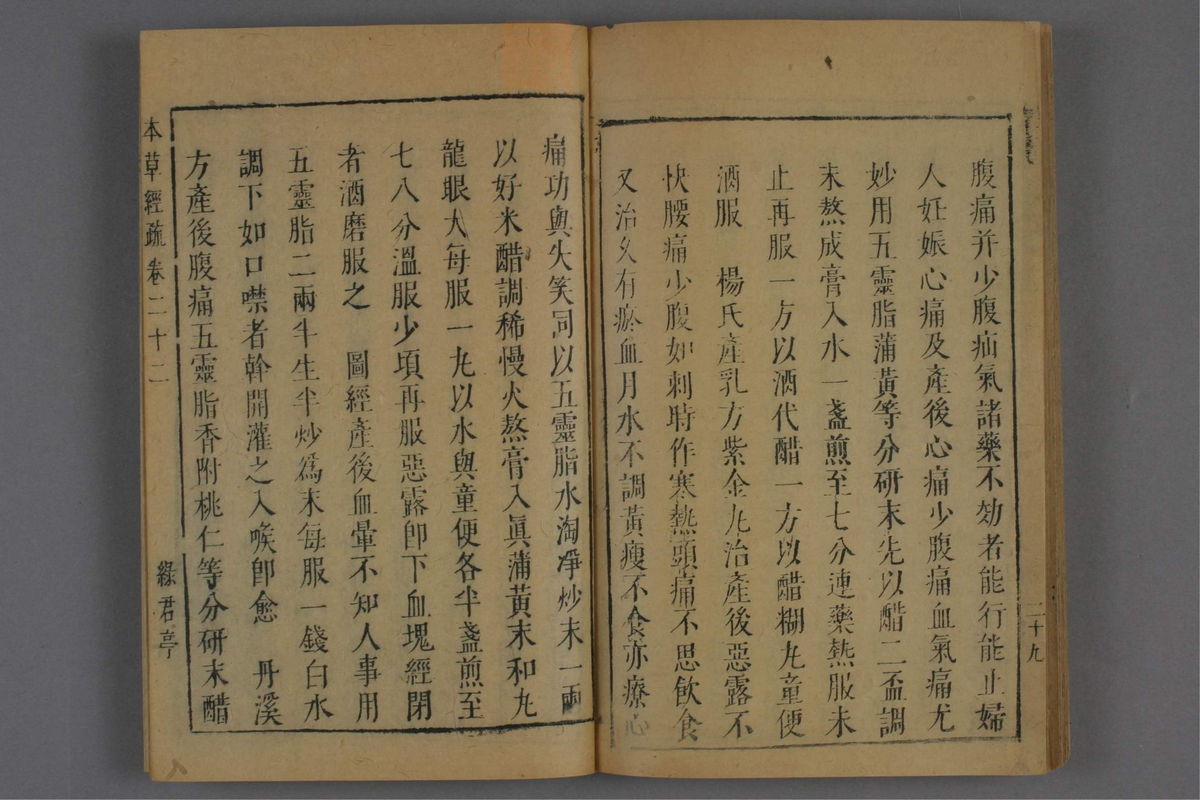 二十九
腹痛并少腹疝氣諸藥不効者能行能止婦
人妊娠心痛及產後心痛少腹痛血氣痛尤
妙用五靈脂蒲黃等分研末先以醋二盃調
末熬成膏入水一盞煎至七分連藥熱服未
止再服一方以酒代醋一方以醋糊丸童便
酒服　楊氏產乳方紫金丸治產後惡露不
快腰痛少腹如刺時作寒熱頭痛不思飲食
又治久有瘀血月水不調黃瘦不食亦療心
痛功與失笑同以五靈脂水淘凈炒末一兩
以好米醋調稀慢火熬膏入眞蒲黃末和丸
龍眼大每服一丸以水與童便各半盞煎至
七八分溫服少頃再服惡露卽下血塊經閉
者酒磨服之　圖經產後血暈不知人事用
五靈脂二兩半生半炒爲末每服一錢白水
調下如口噤者斡開灌之入喉卽愈　丹溪
方產後腹痛五靈脂香附桃仁等分研末醋
本草經疏 卷二十二
綠君亭